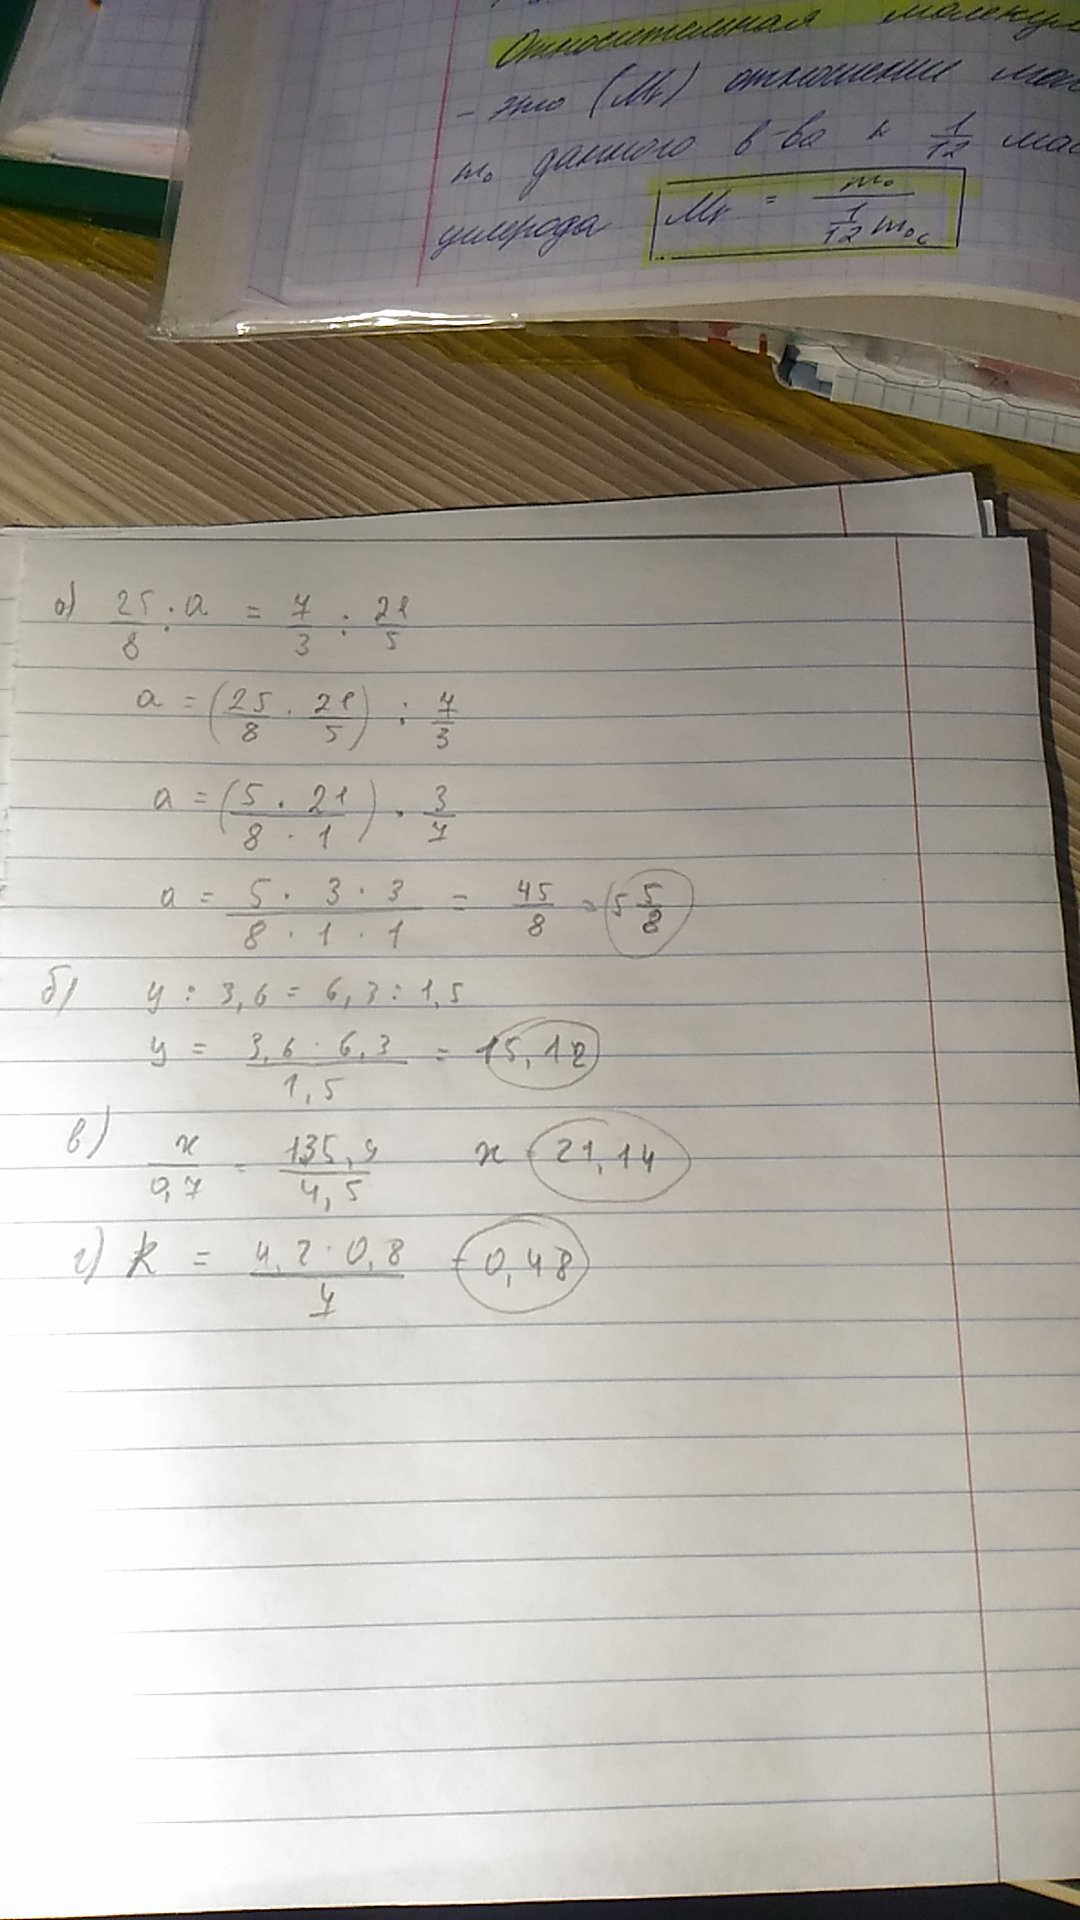 Относительная
- это (Mr) отношение
m₀ данного в-ва к 1/12
углерода Mr = m₀ / (1/12 m₀c)
а) 25/8 : a = 7/3 : 21/5
a = (25/8 · 21/5) : 7/3
a = (5 · 21 / 8 · 1) · 3/7
a = 5 · 3 · 3 / 8 · 1 · 1 = 45/8 = 5 5/8
б) y : 3,6 = 6,3 : 1,5
y = 3,6 · 6,3 / 1,5 = 15,12
в) x/0,7 = 135,9/4,5 x = 21,14
г) k = 4,2 · 0,8 / 7 = 0,48